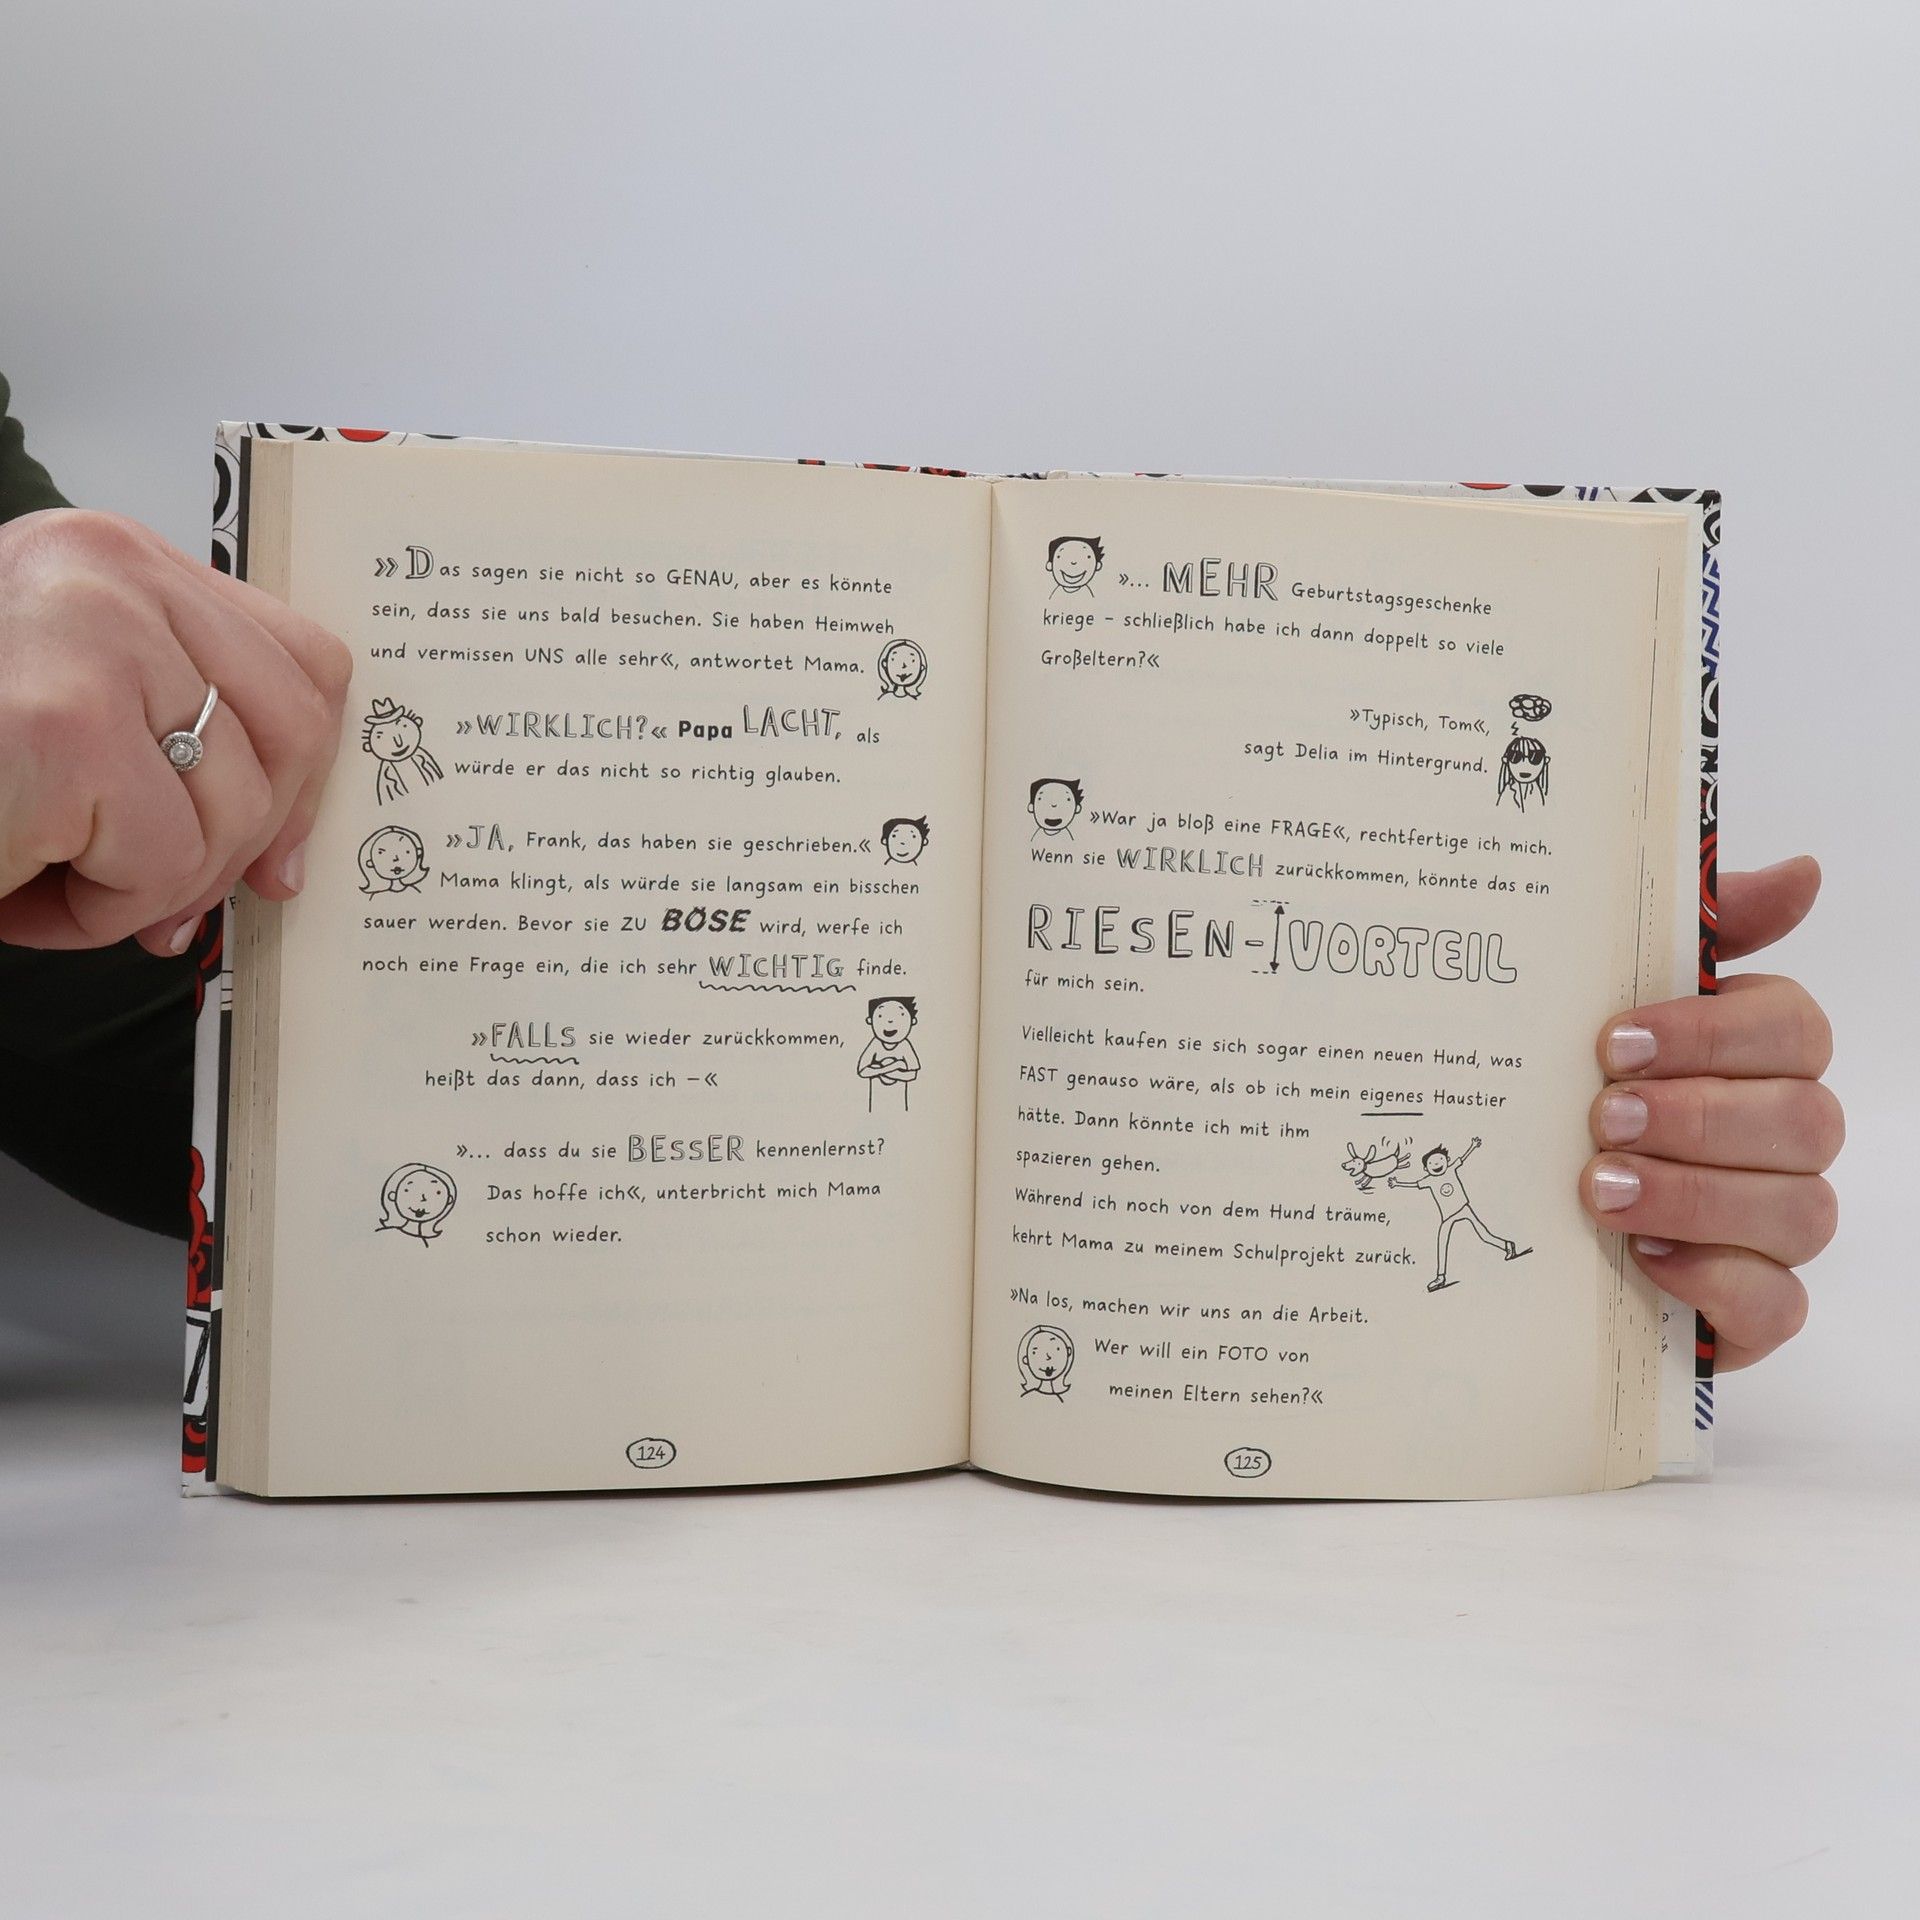 »Das sagen sie nicht so GENAU, aber es könnte
sein, dass sie uns bald besuchen. Sie haben Heimweh
und vermissen UNS alle sehr«, antwortet Mama.
»WIRKLICH?« Papa LACHT, als
würde er das nicht so richtig glauben.
»JA, Frank, das haben sie geschrieben.«
Mama klingt, als würde sie langsam ein bisschen
sauer werden. Bevor sie ZU BÖSE wird, werfe ich
noch eine Frage ein, die ich sehr WICHTIG finde.
»FALLS sie wieder zurückkommen,
heißt das dann, dass ich –«
»... dass du sie BESSER kennenlernst?
Das hoffe ich«, unterbricht mich Mama
schon wieder.
124
»... MEHR Geburtstagsgeschenke
kriege – schließlich habe ich dann doppelt so viele
Großeltern?«
»Typisch, Tom«,
sagt Delia im Hintergrund.
»War ja bloß eine FRAGE«, rechtfertige ich mich.
Wenn sie WIRKLICH zurückkommen, könnte das ein
RIESEN-VORTEIL
für mich sein.
Vielleicht kaufen sie sich sogar einen neuen Hund, was
FAST genauso wäre, als ob ich mein eigenes Haustier
hätte. Dann könnte ich mit ihm
spazieren gehen.
Während ich noch von dem Hund träume,
kehrt Mama zu meinem Schulprojekt zurück.
»Na los, machen wir uns an die Arbeit.
Wer will ein FOTO von
meinen Eltern sehen?«
125